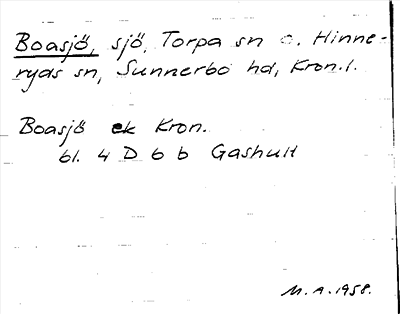 Boasjö, sjö, Torpa sn o. Hinne-
ryds sn, Sunnerbo hd, Kron.l.
Boasjö ek Kron.
bl. 4 D 6 b Gashult
M.A. 1958.